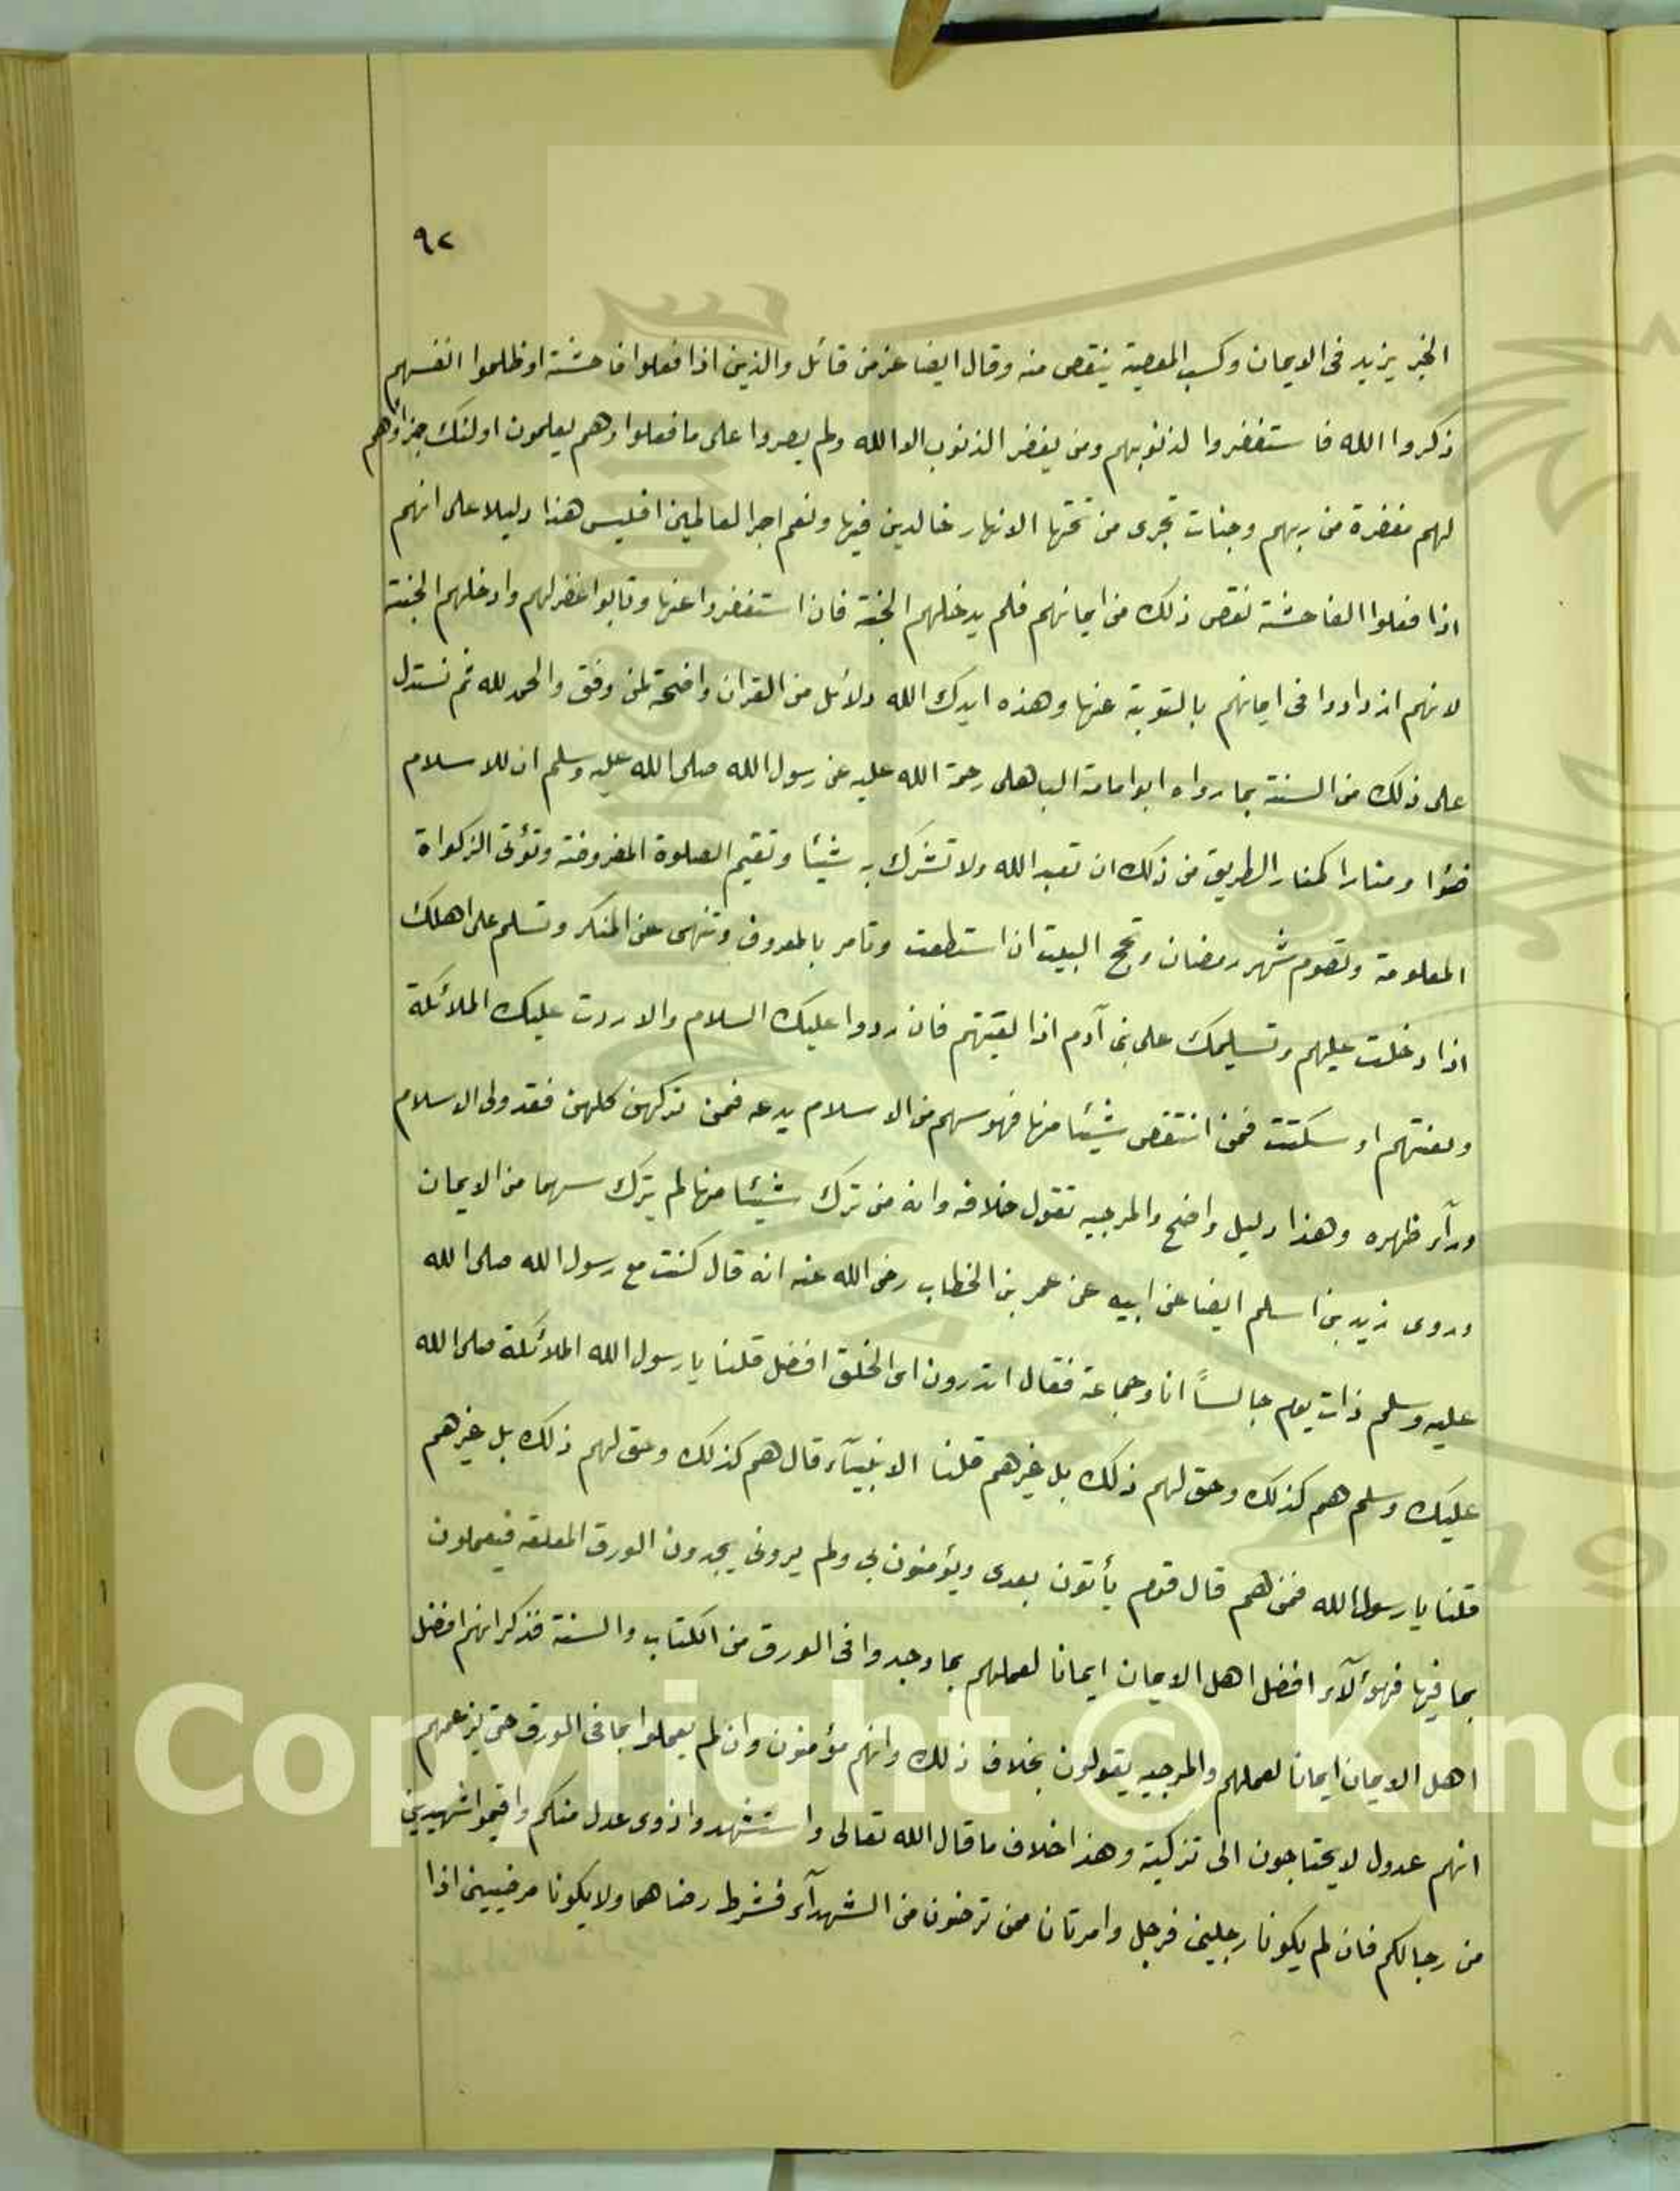 ٩٢
الخير يزيد فى الايمان وكسب المعصية ينقص منه وقال ايضا عز من قائل والذين اذا فعلوا فاحشة او ظلموا انفسهم
ذكروا الله فاستغفروا لذنوبهم ومن يغفر الذنوب الا الله ولم يصروا على ما فعلوا وهم يعلمون اولئك جزاؤهم
لهم مغفرة من ربهم وجنات تجرى من تحتها الانهار خالدين فيها ونعم اجر العالمين افليس هذا دليلا على انهم
اذا فعلوا الفاحشة نقص ذلك من ايمانهم فلم يدخلهم الجنة فان استغفروا عنها وتابوا غفر لهم وادخلهم الجنة
لانهم ازدادوا فى ايمانهم بالتوبة عنها وهذه ايدك الله دلائل من القران واضحة لمن وفق والحمد لله ثم نستدل
على ذلك من السنة بما رواه ابو امامة الباهلى رحمة الله عليه عن رسول الله صلى الله عليه وسلم ان للاسلام
ضؤا ومنارا كمنار الطريق من ذلك ان تعبد الله ولا تشرك به شيئا وتقيم الصلوة المفروضة وتؤتى الزكواة
المعلومة وتصوم شهر رمضان وتحج البيت ان استطعت وتامر بالمعروف وتنهى عن المنكر وتسلم على اهلك
اذا دخلت عليهم وتسليمك على بنى آدم اذا لقيتهم فان ردوا عليك السلام والا ردت عليك الملائكة
ولعنتهم او سكتت فمن انتقص شيئا منها فهو سهم من الاسلام يدعه فمن تركهن كلهن فقد ولى الاسلام
ورآء ظهره وهذا دليل واضح والمرجيه تقول خلافه وانه من ترك شيئا منها لم يترك سهما من الايمان
وروى زيد بن اسلم ايضا عن ابيه عن عمر بن الخطاب رضى الله عنه انه قال كنت مع رسول الله صلى الله
عليه وسلم ذات يوم جالساً انا وجماعة فقال اتدرون اى الخلق افضل قلنا يا رسول الله الملائكة صلى الله
عليك وسلم هم كذلك وحق لهم ذلك بل غيرهم قلنا الانبيآء قال هم كذلك وحق لهم ذلك بل غيرهم
قلنا يا رسول الله فمن هم قال قوم يأتون بعدى ويؤمنون بى ولم يرونى يجدون الورق المعلقه فيعملون
بما فيها فهؤلآء افضل اهل الايمان ايمانا لعملهم بما وجدوا فى الورق من الكتاب والسنة فذكر انهم افضل
اهل الايمان ايمانا لعملهم والمرجيه يقولون بخلاف ذلك وانهم مؤمنون وان لم يعملوا بما فى الورق حتى يزعمهم
انهم عدول لا يحتاجون الى تزكية وهذا خلاف ما قال الله تعالى واستشهدوا ذوى عدل منكم واقيموا شهيدين
من رجالكم فان لم يكونا رجلين فرجل وامرتان ممن ترضون من الشهدآء فشرط رضاهما ولا يكونا مرضيين اذا
Copyright © King